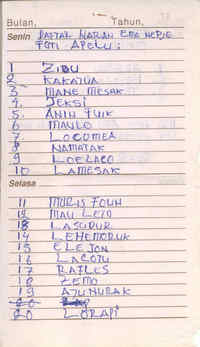 Bulan, Tahun,
Senin DAFTAR WARAN EMA HERIE
FOTI APELU:
1 ZIBU
2 KAKATUA
3 MANE MESAK
4. JEKSI
5. ANIN FUIK
6 MAULO
7. LOCOMEA
8 NAMATAK
9 LOELACO
10 LAMESAK
Selasa
11 MURIS FOUN
12 MAU LETO
13 LASUDUR
14 LEHEMORUK
15 ELE JON
16 LACOTU
17 RATLES
18 ZEMO
19 AJUNURAK
20 LORAPI